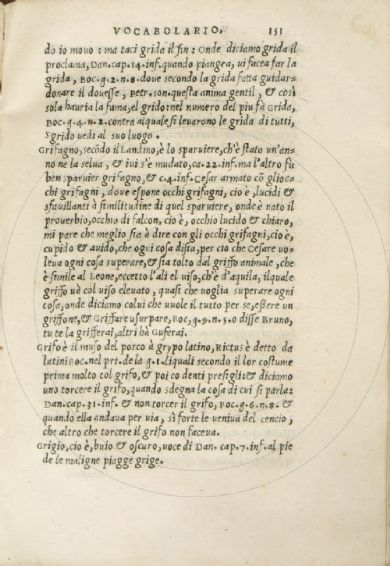 VOCABOLARIO. 151
do io mouo : ma taci grida il fin : Onde diciamo grida il
proclama, Dan. cap. 14. inf. quando piangea, ui facea far la
grida, Boc. g. 2. n. 8. doue secondo la grida fatta guidar=
donare il douesse, Petr. son. questa anima gentil, & cosi
sola hauria la fama, el grido: nel numero del piu fa Grida,
Boc. g. 4. n. 2. contra al quale si leuarono le grida di tutti,
Sgrido uedi al suo luogo.
Grifagno, secōdo il Landino, è lo sparuiere, ch'è stato un'an=
no ne la selua, & iui s'è mudato, ca. 22. inf. ma l'altro fu
ben sparuier grifagno, & c. 4. inf. Cesar armato cō gliocc
chi grifagni, doue espone occhi grifagni, cio è, lucidi &
sfauillanti à similitudine di quel sparuiere, onde è nato il
prouerbio, occhio di falcon, cio è, occhio lucido & chiaro,
mi pare che meglio sia à dire con gli occhi grifagni, cio è,
cupido & auido, che ogni cosa disia, per cio che Cesare uo=
leua ogni cosa superare, & sia tolto dal griffo animale, che
è simile al Leone, eccetto l'ali el uiso, ch'è d'aquila, il quale
griffo uà col uiso eleuato, quasi che uoglia superare ogni
cosa, onde diciamo colui che uuole il tutto per se, eßere un
griffone, & Griffare usurpare, Boc. g. 9. n. 5. o disse Bruno,
tu te la grifferai, altri hà Guferai.
Grifo è il muso del porco à grypo latino, Rictus è detto da
latini Boc. nel pri. de la g. 1. li quali secondo il lor costume
prima molto col grifo, & poi co denti presigli: & diciamo
uno torcere il grifo, quando sdegna la cosa di cui si parla:
Dan. cap. 31. inf. & non torcer il grifo, Boc. g. 6. n. 8. &
quando ella andaua per uia, sì forte le ueniua del cencio,
che altro che torcere il grifo non faceua.
Grigio, cio è, buio & oscuro, uoce di Dan. cap. 7. inf. al pie
de le maligne piagge grige.